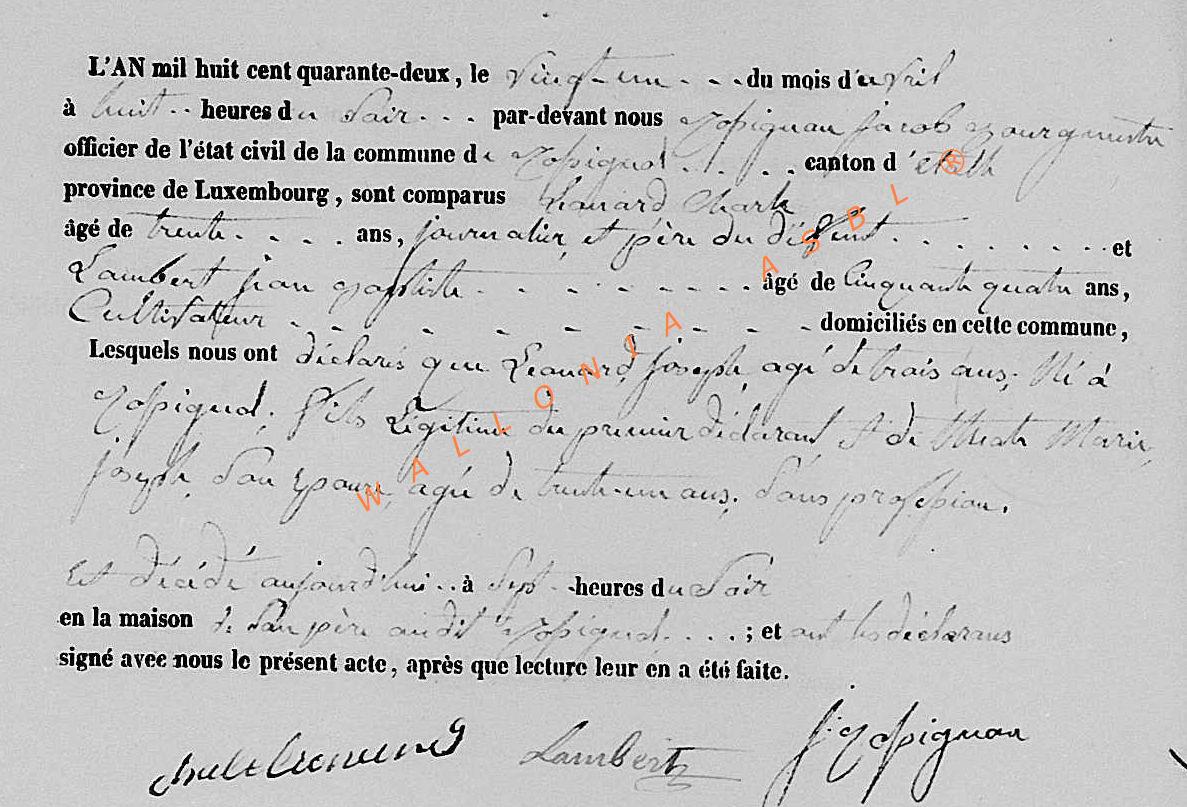 L'AN mil huit cent quarante-deux, le Vingt-un - - - du mois d'avril
à huit - - heures du Soir - - - par-devant nous jacob Bourgmestre
officier de l'état civil de la commune de - - - canton d'etalle
province de Luxembourg, sont comparus Léonard Charle
âgé de trente - - - - ans, journalier, et père du défunt - - - - - - - et
Lambert jean Baptiste - - - - - - - - âgé de Cinquante quatre ans,
Cultivateur - - - - - - - - - domiciliés en cette commune,
Lesquels nous ont déclarés que Léonard, joseph, agé de trois ans, Né à
fils Légitime du premier déclarant et de Marie
joseph, Son Epouse, agée de trente-un ans, Sans profession.
Est décédé aujourd'hui - - à Sept - heures du Soir
en la maison de Son père audit - - - ; et ont les déclarans
signé avec nous le présent acte, après que lecture leur en a été faite.
Lambert
WALLONIA ASBL ®